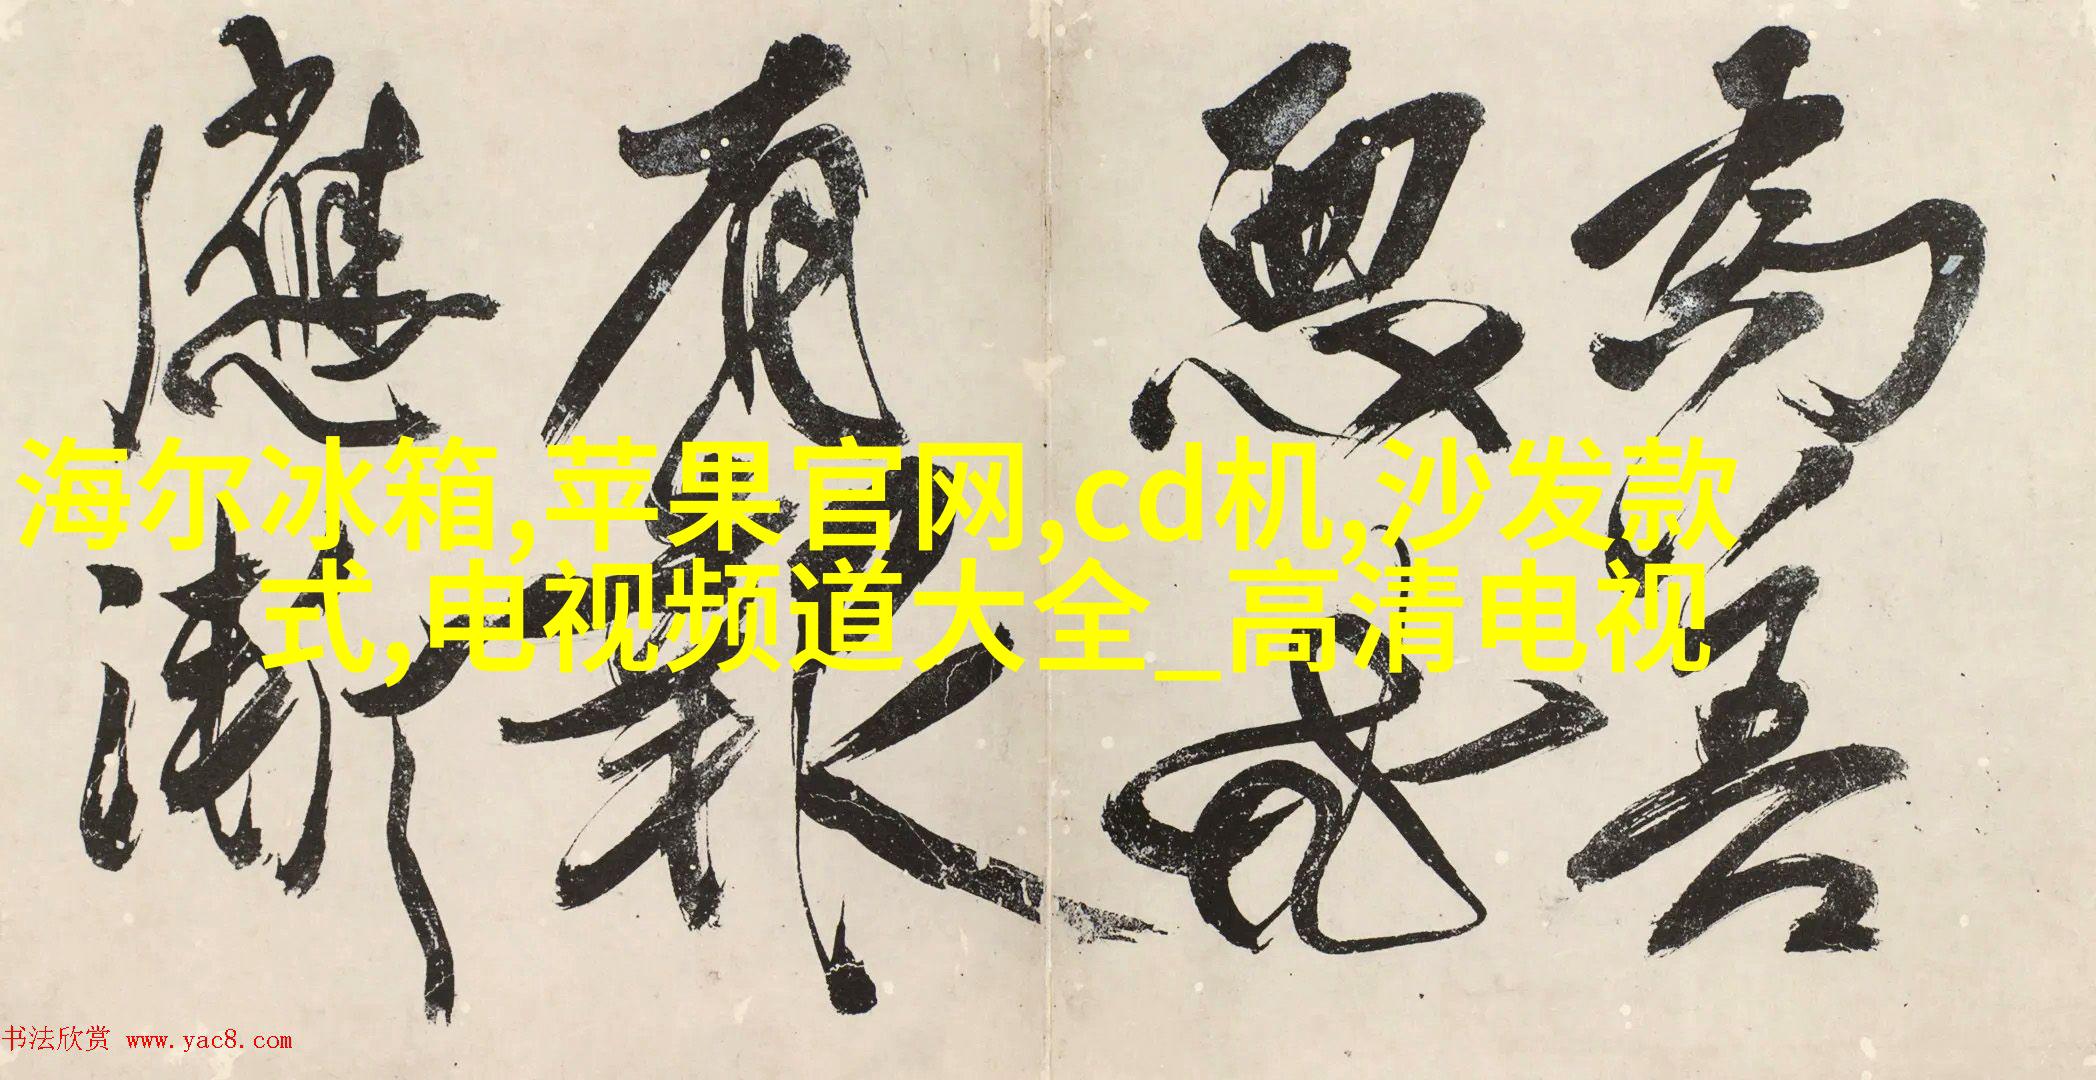 為善
惡或
有報
應漸
海尔冰箱,苹果官网,cd机,沙发款
式,电视频道大全_高清电视
书法欣赏 www.yac8.com